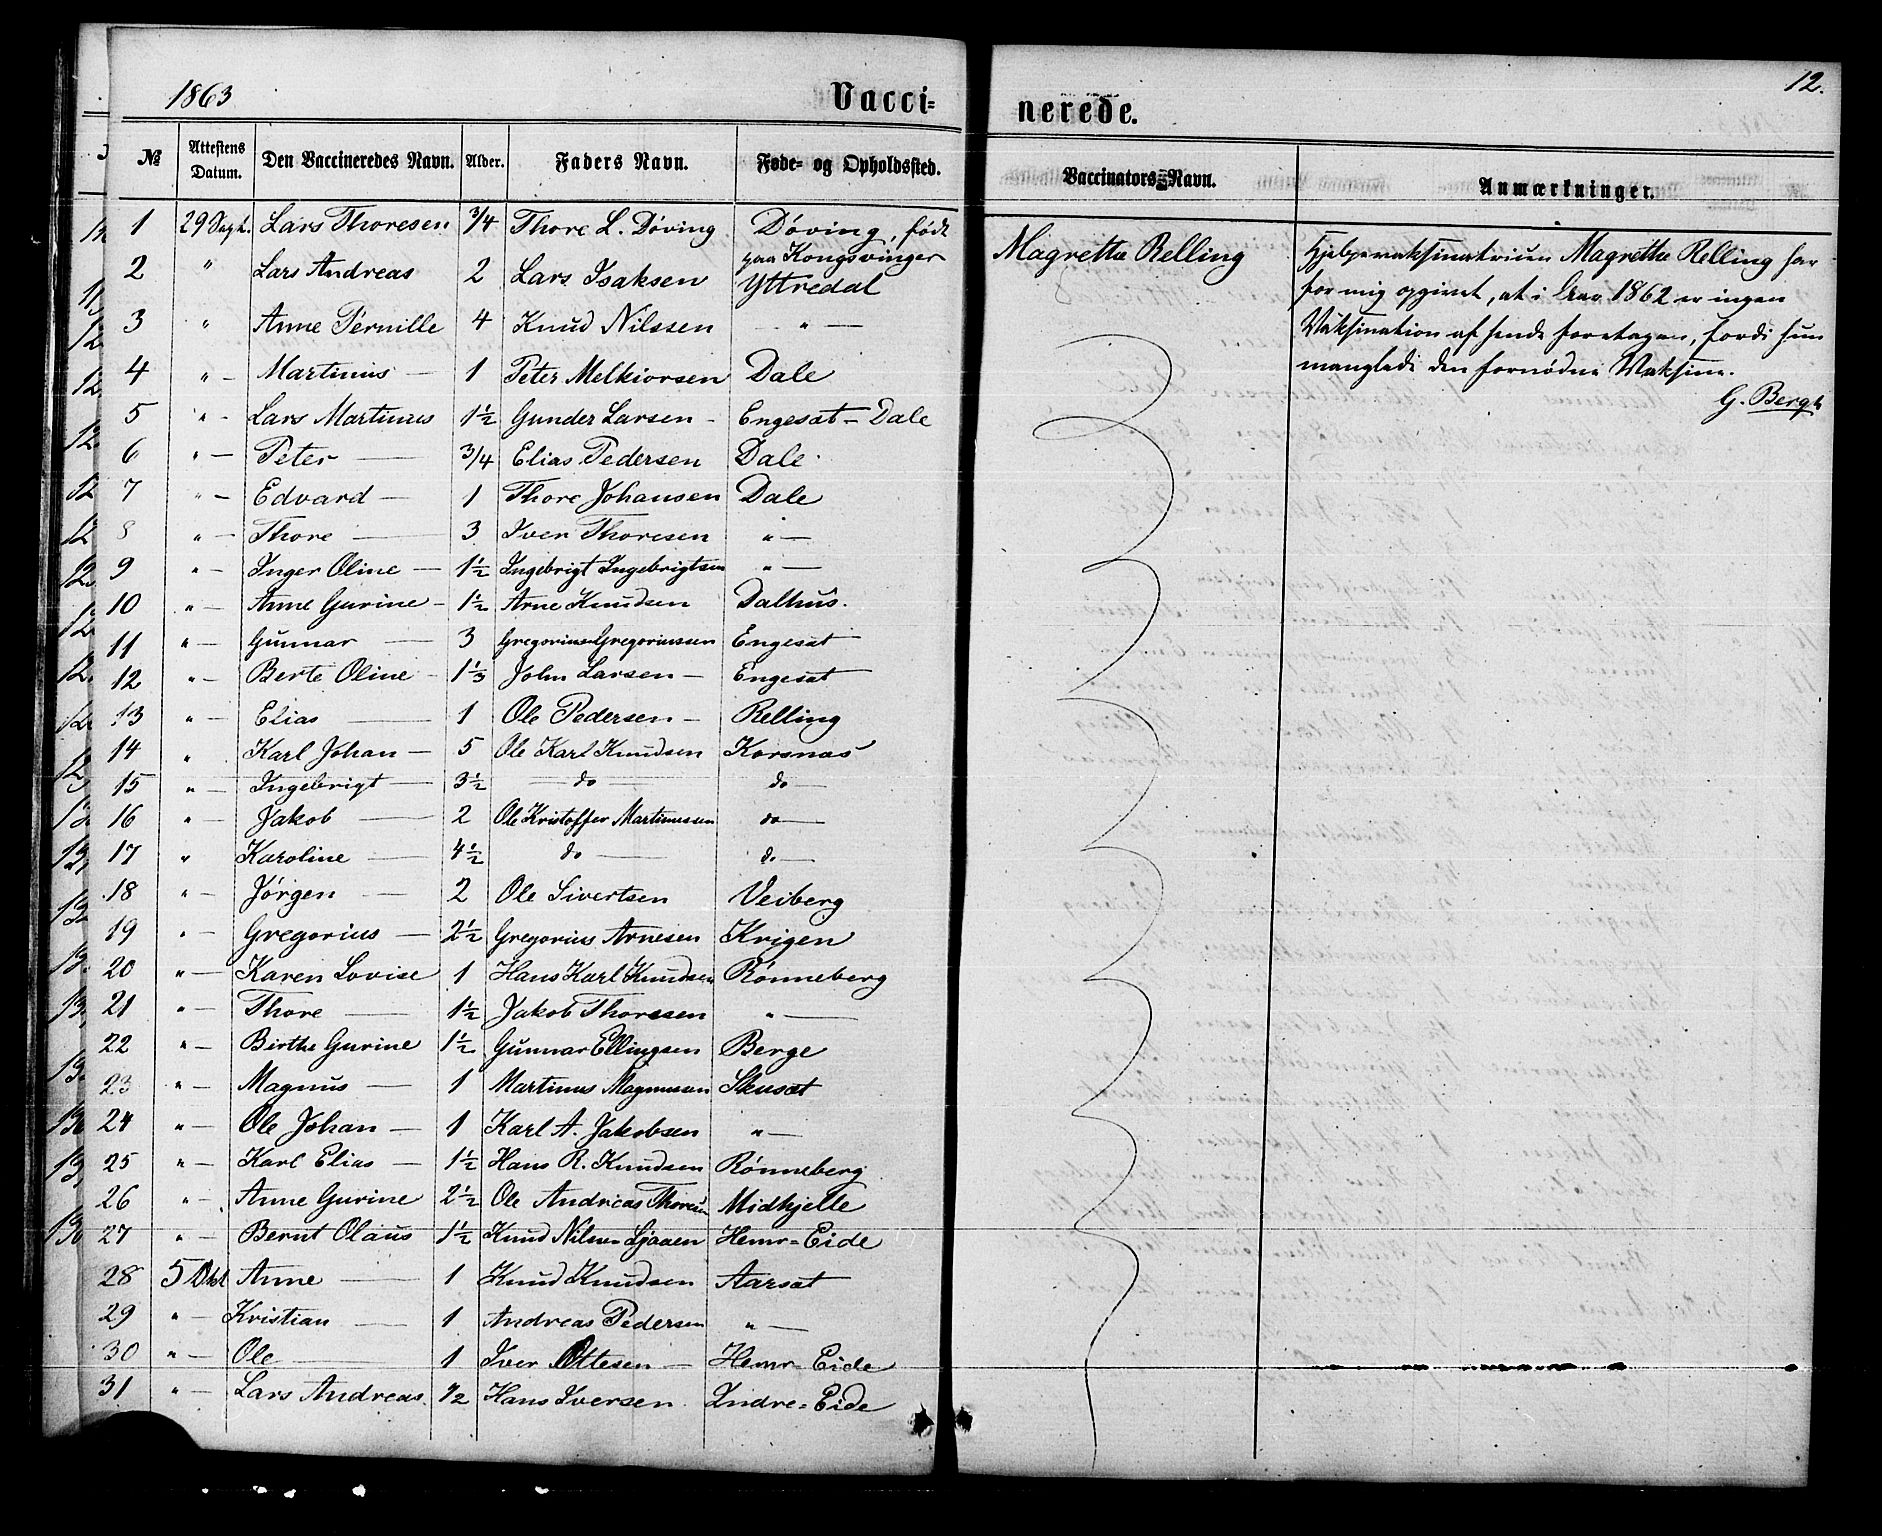 1863 Vacci= nerede. 12.
№ Attestens Datum. Den Vaccineredes Navn. Alder. Faders Navn. Føde- og Opholdssted. Vaccinators Navn. Anmærkninger.
1 29 Sept. Lars Thoresen 3/4 Thore L. Döving Döving, född paa Kongsvinger
2 " Lars Andreas 2 Lars Isaksen Yttredal
3 " Anne Pernille 4 Knud Nilssen — " —
4 " — Martinus — 1 Peter Melkiorsen Dale
5 " - Lars Martinus 1½ Gunder Larsen - Engesæt - Dale
6 " — Peter — 3/4 Elias Pedersen Dale
7 " — Edvard — 1 Thore Johansen Dale
8 " — Thore — 3 Iver Thoresen " —
9 " — Inger Oline — 1½ Ingebrigt Ingebrigtsen " —
10 " — Anne Gurine - 1½ Arne Knudsen Dalhus.
11 " — Gunnar — 3 Gregorius Gregoriussen Engesæt
12 " — Berte Oline - 1⅓ John Larsen — Engesæt
13 " — Elias — 1 Ole Pedersen — Relling
14 " Karl Johan — 5 Ole Karl Knudsen Korsnæs
15 " — Ingebrigt — 3½ — do — do —
16 " — Jakob — 2 Ole Kristoffer Martinussen do —
17 " Karoline — 4½ do — do —
18 " — Jörgen — 2 Ole Sivertsen Veiberg
19 " — Gregorius — 2½ Gregorius Arnesen Krigen
20 " — Karen Lovise 1 Hans Karl Knudsen Rönneberg
21 " — Thore — 1½ Jakob Thoresen " —
22 " — Birthe Gurine 1½ Gunnar Ellingsen Berge
23 " — Magnus — 1 Martinus Magnussen Skusæt
24 " — Ole Johan — 1 Karl A. Jakobsen " —
25 " — Karl Elias — 1½ Hans R. Knudsen Rönneberg
26 " — Anne Gurine 2½ Ole Andreas Thoresen Midhjelle
27 " — Bernt Olaus 1½ Knud Nilsen Ljøen Hemr=Eide
28 5 Okt Anne — 1 Knud Knudsen Aarsæt
29 " — Kristian — 1 Andreas Pedersen " —
30 " — Ole — 1 Iver Ottesen — Hemr=Eide
31 " — Lars Andreas. ½ Hans Iversen. Indre=Eide
Magrethe Relling
Hjelpevaksinatricen Magrethe Relling har
for mig opgivet, at i Aar 1862 er ingen
Vaksination af hende foretagen, fordi hun
manglede den fornødne Vaksine.
G. Bergh